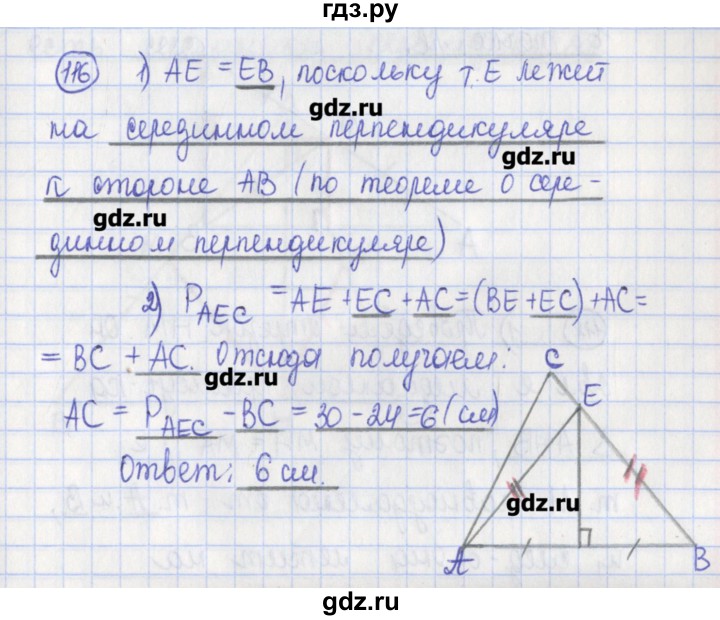 гдз.ру
116 1) AE = EB, поскольку т. E лежит
gdz.ru
на серединном перпендикуляре
gdz.ru
к стороне AB (по теореме о сере-
gdz.ru
динном перпендикуляре)
2) P_AEC = AE + EC + AC = (BE + EC) + AC =
= BC + AC. Отсюда получаем:
gdz.ru
AC = P_AEC - BC = 30 - 24 = 6 (см)
Ответ: 6 см.
C
E
gdz.ru
A
B
gdz.ru